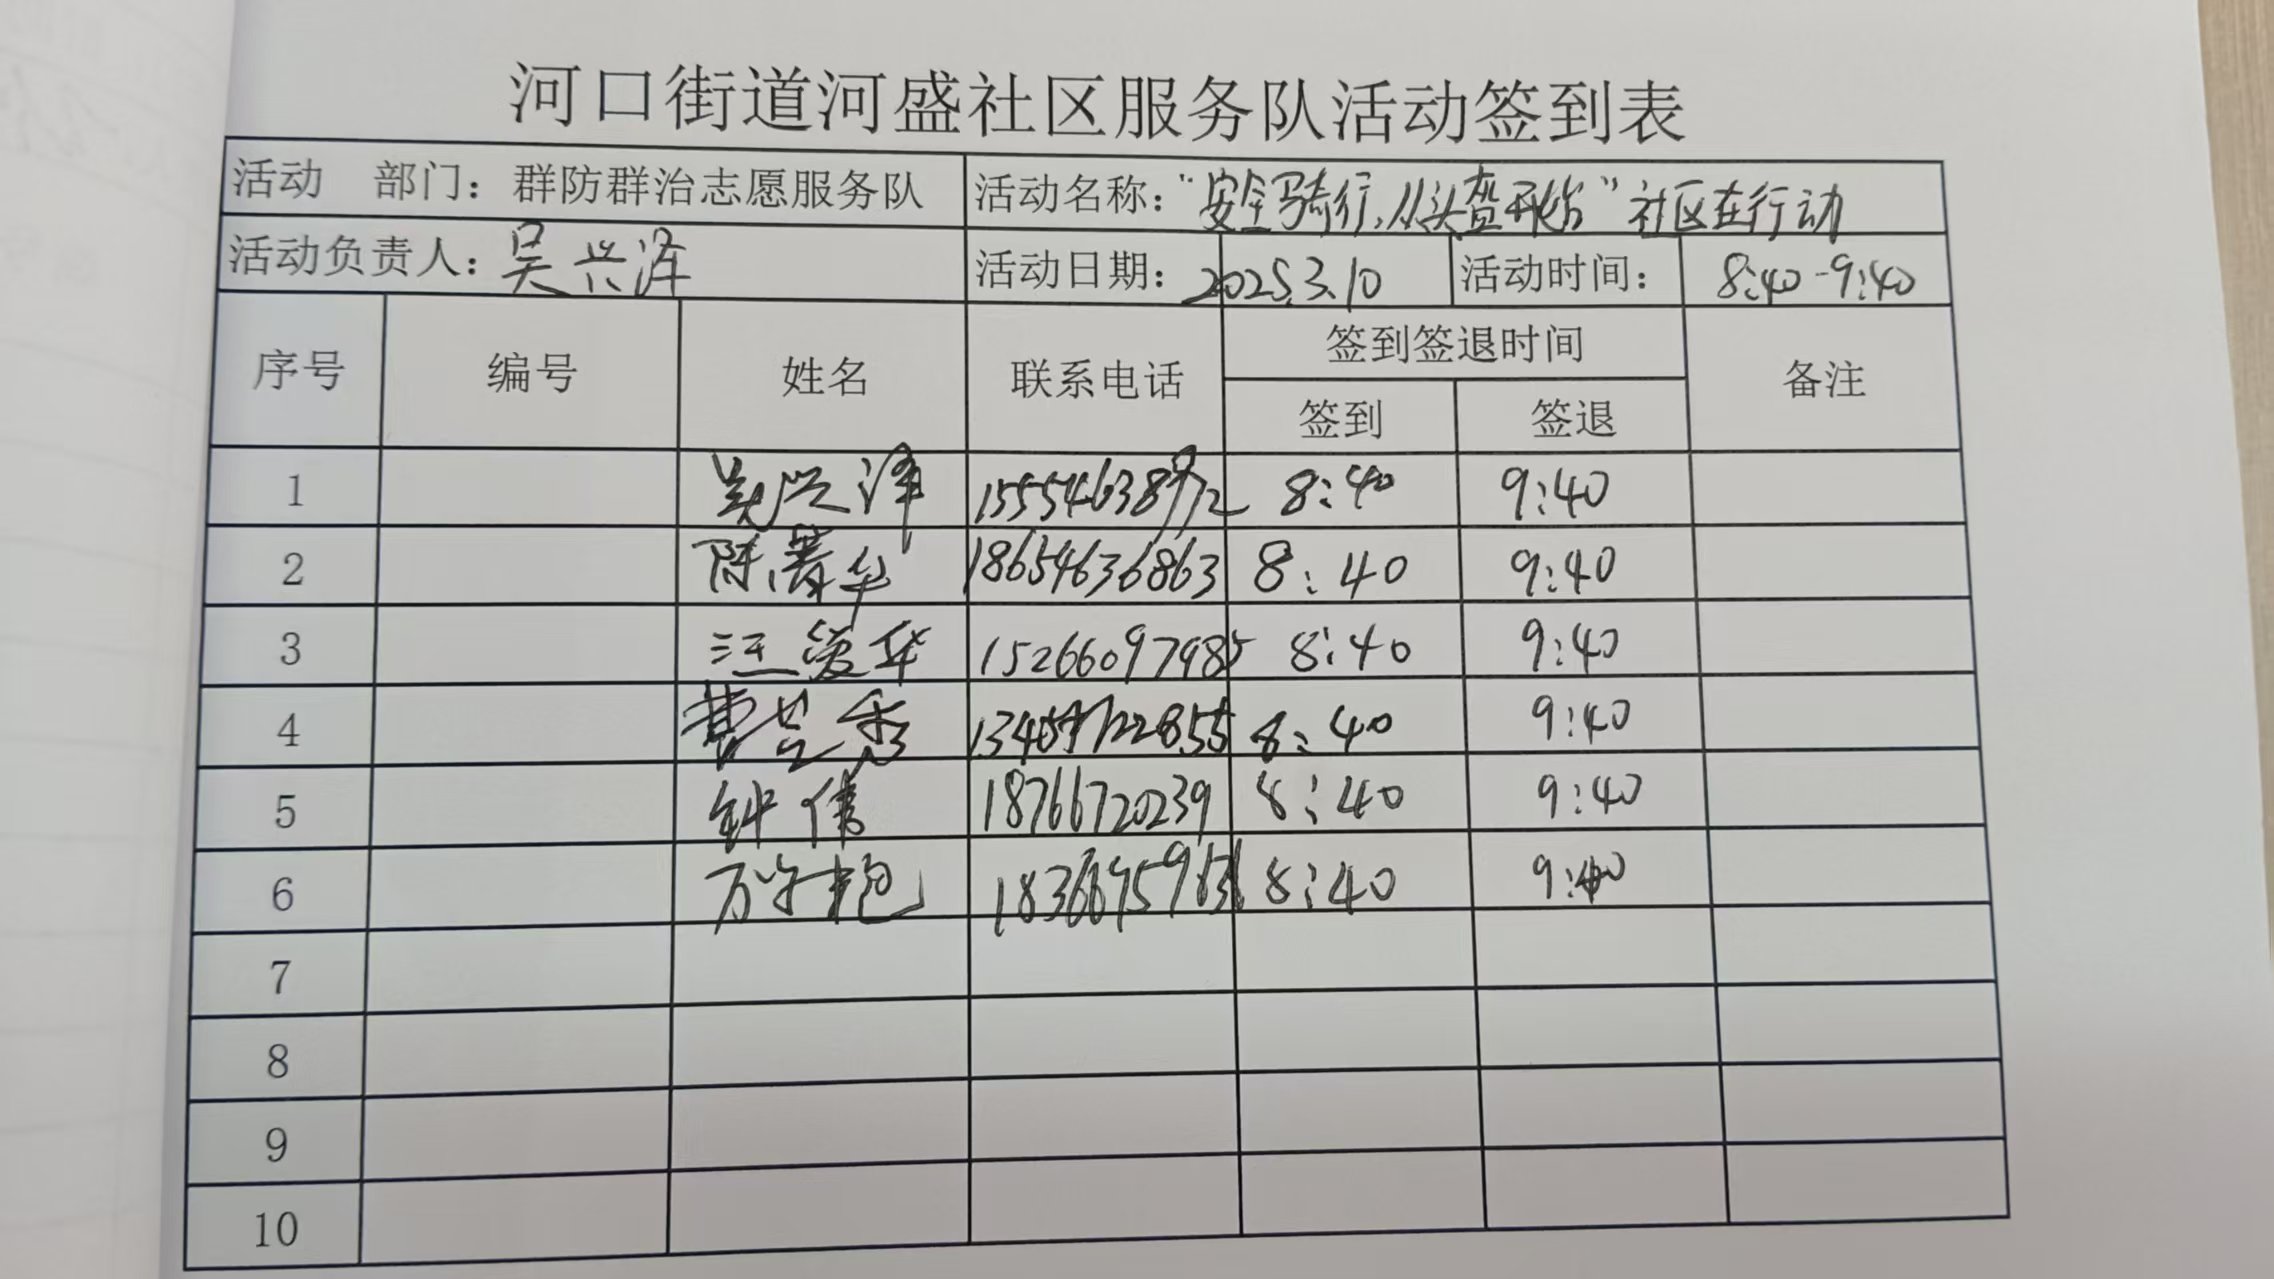 河口街道河盛社区服务队活动签到表
活动 部门：群防群治志愿服务队 活动名称：“安全骑行，从头盔开始”社区在行动
活动负责人：吴兴泽 活动日期：2025.3.10 活动时间：8:40-9:40
序号 编号 姓名 联系电话 签到签退时间 备注
签到 签退
1 吴兴泽 15554638972 8:40 9:40
2 陈 华 18654636863 8:40 9:40
3 汪爱华 15266097985 8:40 9:40
4 曹兰香 8:40 9:40
5 钟倩 18766720239 8:40 9:40
6 8:40 9:40
7
8
9
10